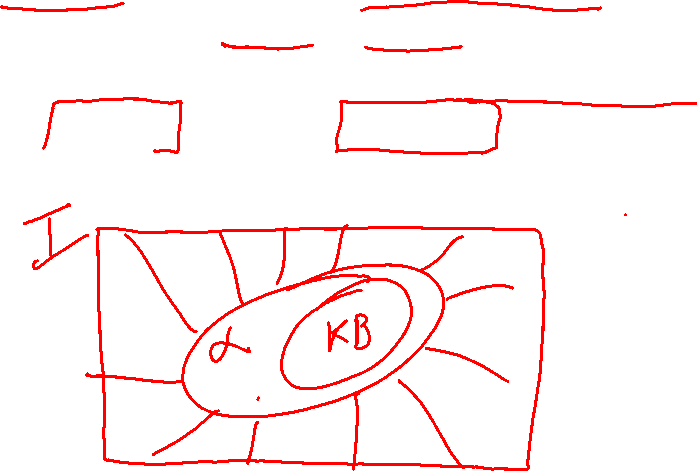 I
α KB